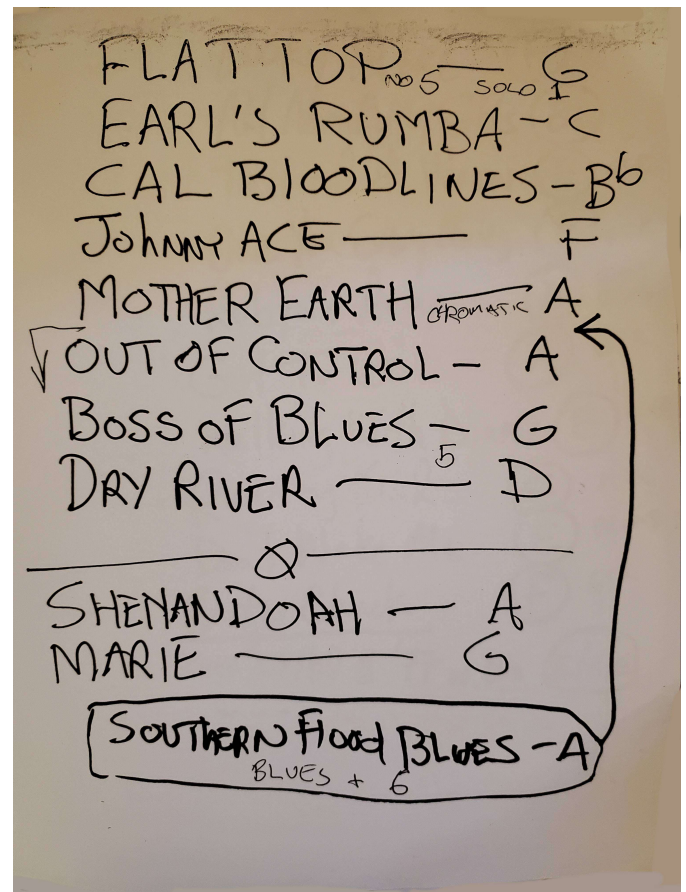 FLAT TOP — G
NO 5 SOLO 1
EARL'S RUMBA - C
CAL BLOODLINES - Bb
JOHNNY ACE — F
MOTHER EARTH — A
CHROMATIC
OUT OF CONTROL - A
BOSS OF BLUES - G
5
DRY RIVER — D
SHENANDOAH — A
MARIE — G
SOUTHERN FLOOD BLUES - A
BLUES + 6